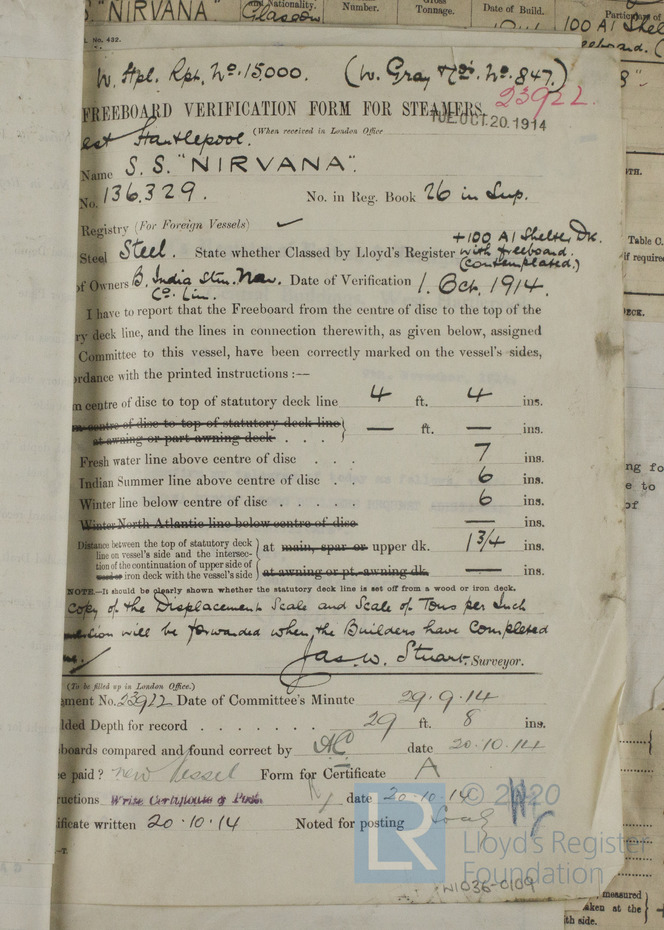 S "NIRVANA"
Glasgow
Nationality.
Number.
Gross
Tonnage.
Date of Build.
Particulars of
100 A1 Shel
No. 432.
W. Hpl. Rpt. No. 15,000. (W. Gray & Co's. No. 847.)
FREEBOARD VERIFICATION FORM FOR STEAMERS. 23922
TUE. OCT. 20. 1914
(When received in London Office
est Hartlepool.
Name S.S. "NIRVANA".
No. 136,329. No. in Reg. Book 26 in Sup.
Registry (For Foreign Vessels) ✓
+100 A1 Shelter Dk.
Steel Steel. State whether Classed by Lloyd's Register with freeboard.
(contemplated.)
of Owners B. India Stm. Nav. Date of Verification 1. Oct. 1914.
Co. Lim.
I have to report that the Freeboard from the centre of disc to the top of the
ry deck line, and the lines in connection therewith, as given below, assigned
Committee to this vessel, have been correctly marked on the vessel's sides,
ordance with the printed instructions :—
m centre of disc to top of statutory deck line 4 ft. 4 ins.
m centre of disc to top of statutory deck line
at awning or part awning deck . . . } — ft. — ins.
Fresh water line above centre of disc . . . 7 ins.
Indian Summer line above centre of disc . . 6 ins.
Winter line below centre of disc . . . . . 6 ins.
Winter North Atlantic line below centre of disc — ins.
Distance between the top of statutory deck
line on vessel's side and the intersec- } at main, spar or upper dk. 1 3/4 ins.
tion of the continuation of upper side of
wood or iron deck with the vessel's side } at awning or pt.-awning dk. — ins.
NOTE.—It should be clearly shown whether the statutory deck line is set off from a wood or iron deck.
Copy of the Displacement Scale and Scale of Tons per Inch
will be forwarded when the Builders have completed
Jas. W. Stuart. Surveyor.
(To be filled up in London Office.)
ment No. 23922 Date of Committee's Minute 29.9.14
lded Depth for record . . . . . . . 29 ft. 8 ins.
boards compared and found correct by date 20.10.14
e paid? new Vessel Form for Certificate A
ructions Write Certificate & Post. date 20.10.14
ificate written 20.10.14 Noted for posting
© 2020
LR
Lloyd's Register
Foundation
W1036-0109
TH.
Table C.
if require
ECK.
ng fo
e to
of
measured
aken at the
th side.